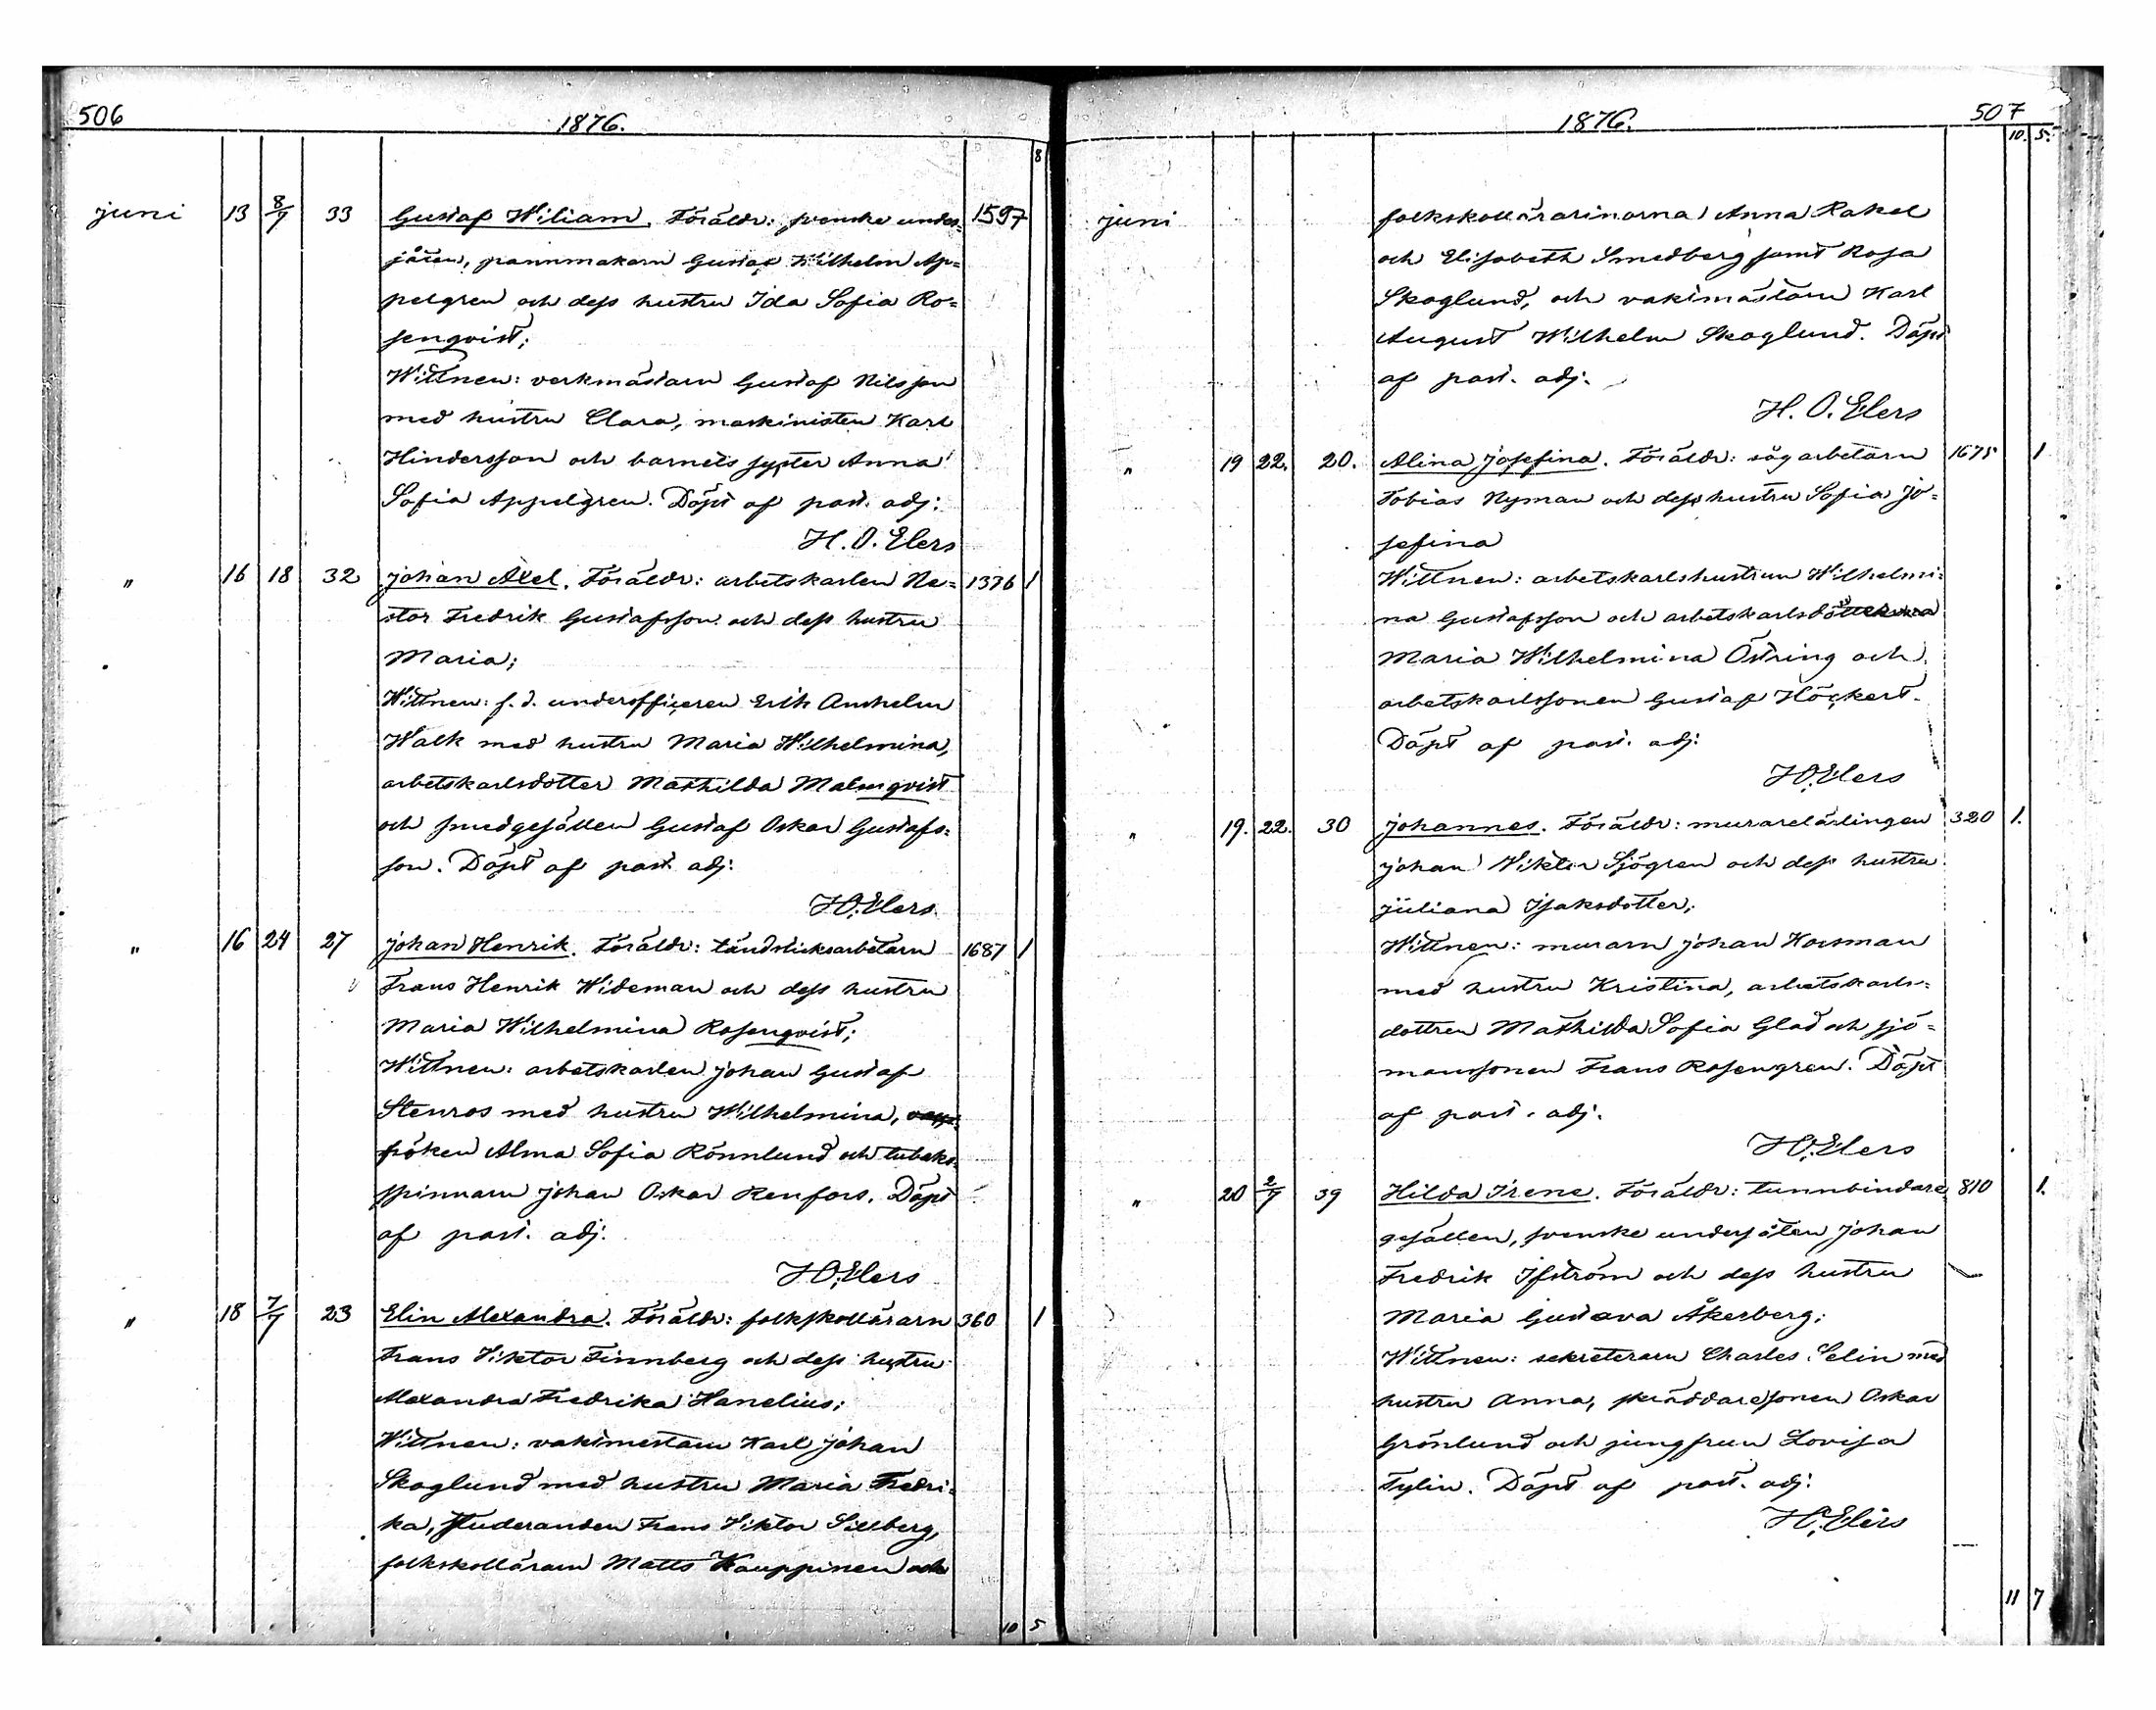 506
1876.
8
juni 13 8/7 33 Gustaf Wiliam. Föräldr: svenske under= 1597
såten, pannmakarn Gustaf Wilhelm Ap=
pelgren och dess hustru Ida Sofia Ro=
senqvist;
Wittnen: verkmästarn Gustaf Nilsson
med hustru Clara, maskinisten Karl
Hindersson och barnets syster Anna
Sofia Appelgren. Döpt af past. adj:
H. O. Elers
" 16 18 32 Johan Axel. Föräldr: arbetskarlen Ne= 1336 1
stor Fredrik Gustafsson och dess hustru
Maria;
Wittnen: f. d. underofficeren Erik Anshelm
Walk med hustru Maria Wilhelmina,
arbetskarlsdotter Mathilda Malmqvist
och smedgesällen Gustaf Oskar Gustafs=
son. Döpt af past. adj:
H.O. Elers
" 16 24 27 Johan Henrik. Föräldr: tändsticksarbetarn 1687 1
Frans Henrik Wideman och dess hustru
Maria Wilhelmina Rosenqvist;
Wittnen: arbetskarlen Johan Gustaf
Stenros med hustru Wilhelmina,
fröken Alma Sofia Rönnlund och tobaks=
spinnarn Johan Oskar Renfors. Döpt
af past. adj:
H.O. Elers
" 18 7/7 23 Elin Alexandra. Föräldr: folkskollärarn 360 1
Frans Viktor Finnberg och dess hustru
Alexandra Fredrika Hanelius;
Wittnen: vaktmestarn Karl Johan
Skoglund med hustru Maria Fredri=
ka, studeranden Frans Viktor Sillberg,
folkskollärarn Matts Kauppinen och
10 5
1876.
507
10. 5.
juni folkskollärarinorna Anna Rakel
och Elisabeth Smedberg samt Rosa
Skoglund, och vaktmästarn Karl
August Wilhelm Skoglund. Döpt
af past. adj.
H. O. Elers
" 19 22. 20. Alina Josefina. Föräldr: sågarbetarn 1675 1
Tobias Nyman och dess hustru Sofia Jo=
sefina
Wittnen: arbetskarlshustrun Wilhelmi=
na Gustafsson och
Maria Wilhelmina Östring och
arbetskarlssonen Gustaf Höckert.
Döpt af past. adj:
H.O. Elers
" 19. 22. 30 Johannes. Föräldr: murarelärlingen 320 1.
Johan Viktor Sjögren och dess hustru
Juliana Isaksdotter;
Wittnen: murarn Johan Korsman
med hustru Kristina, arbetskarls=
dottren Mathilda Sofia Glad och sjö=
manssonen Frans Rosengren. Döpt
af past. adj.
H.O. Elers
" 20 2/7 39 Hilda Irene. Föräldr: tunnbindare 810 1.
gesällen, svenske undersåten Johan
Fredrik Ifström och dess hustru
Maria Gustava Åkerberg;
Wittnen: sekreterarn Charles Selin med
hustru Anna, skräddaresonen Oskar
Grönlund och jungfrun Lovisa
Tylin. Döpt af past. adj:
H.O. Elers
11 7